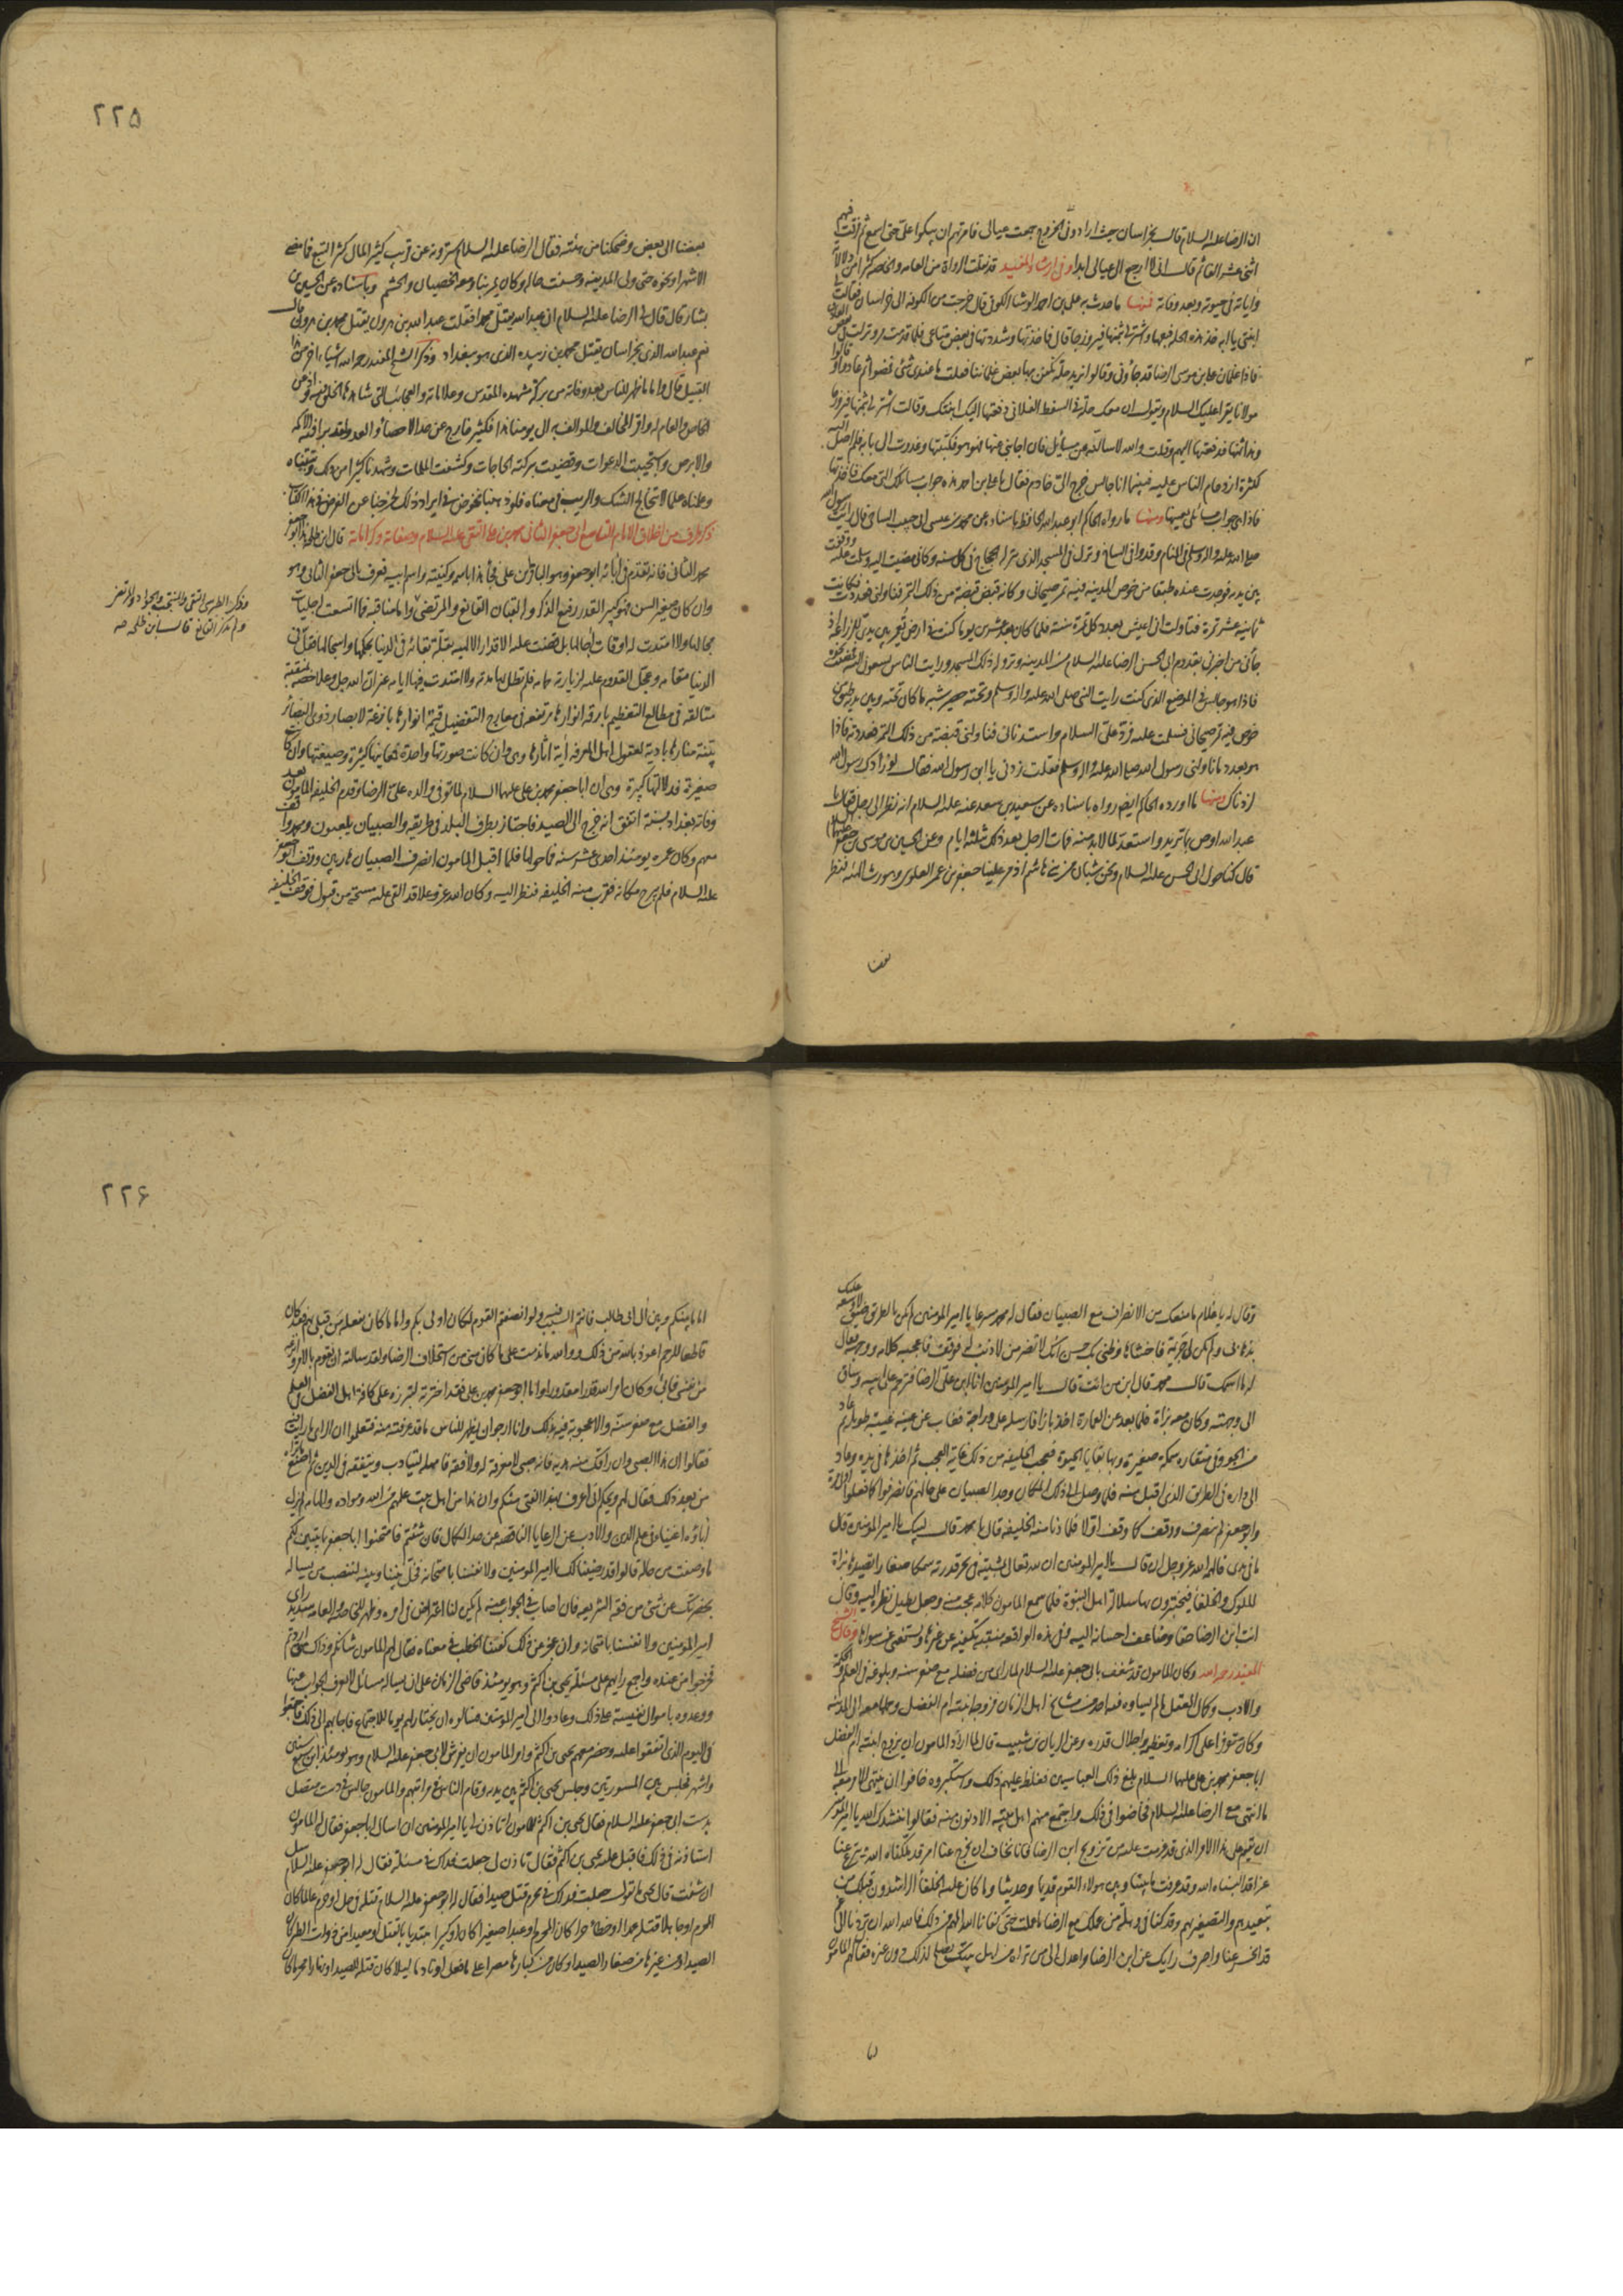 ان الرضا عليه السلام قال بخراسان حيث ارادوا بي الخروج جمعت عيالي فامرتهم ان يبكوا على حتى اسمع ثم فرقت فيهم
اثنى عشر الف ثم قلت اني لا ارجع الى عيالي ابدا وفي ارشاد المفيد قد نقلت الرواة من العامة والخاصة كثيرا من دلالاته
وآياته في حيوته وبعد وفاته فمنها ما حدث به علي بن احمد الوشا الكوفي قال خرجت من الكوفة الى خراسان فقالت لي
ابنتي يا ابه خذ هذه الحلة فبعها واشتر لي بثمنها فيروزجا قال فاخذتها وشددتها في بعض متاعي فلما قدمت مرو نزلت في بعض
فاذا غلمان علي بن موسى الرضا قد جاؤني وقالوا نريد حلة نكفن بها بعض غلماننا فقلت ما عندي شئ فمضوا ثم عادوا وقالوا
مولانا يقرا عليك السلام ويقول ان معك حلة في السفط الفلاني دفعتها اليك ابنتك وقالت اشتر لي بثمنها فيروزجا
وهذا ثمنها فدفعتها اليهم وقلت والله لاسالنه عن مسائل فان اجابني عنها فهو هو فكتبتها وغدوت الى بابه فلم اصل اليه
كثرة ازدحام الناس عليه فبينما انا جالس خرج الي خادم فقال يا علي بن احمد هذه جواب مسائلك التي معك فاخذتها
فاذا هي جواب مسائلي بعينها ومنها ما رواه الحاكم ابو عبد الله الحافظ باسناده عن محمد بن عيسى ابي حبيب النباجي قال رايت رسول الله
صلى الله عليه واله وسلم في المنام وقد وافى النباج ونزل في المسجد الذي ينزله الحجاج في كل سنة وكاني مضيت اليه وسلمت عليه ووقفت
بين يديه فوجدت عنده طبقا من خوص المدينة فيه تمر صيحاني وكانه قبض قبضة من ذلك التمر فناولني فعددت فكانت
ثمانية عشر تمرة فتاولت اني اعيش بعدد كل تمرة سنة فلما كان بعد عشرين يوما كنت في ارض تعمر بين يدي للزراعة اذ
جائني من اخبرني بقدوم ابي الحسن الرضا عليه السلام من المدينة ونزوله ذلك المسجد ورايت الناس يسعون اليه فمضيت نحوه
فاذا هو جالس في الموضع الذي كنت رايت النبي صلى الله عليه واله وسلم وتحته حصير شبه ما كان تحته وبين يديه طبق من
خوص فيه تمر صيحاني فسلمت عليه فرد علي السلام واستدناني فناولني قبضة من ذلك التمر فعددته فاذا
هو بعدد ما ناولني رسول الله صلى الله عليه واله وسلم فقلت زدني يا ابن رسول الله فقال لو زادك رسول الله
لزدناك ومنها ما اورده الحاكم ايضا ورواه باسناده عن سعيد بن سعد عنه عليه السلام انه نظر الى رجل فقال يا
عبد الله اوص بما تريد واستعد لما لابد منه فمات الرجل بعد ذلك بثلثة ايام وعن الحسين بن موسى بن جعفر عليهما السلام
قال كنا حول ابي الحسن عليه السلام ونحن شبان من بني هاشم اذ مر علينا جعفر بن عمر العلوي وهو رث الهيئة فنظر
بعضنا
٢٢٥
بعضنا الى بعض وضحكنا من هيئته فقال الرضا عليه السلام لترونه عن قريب كثير المال كثير التبع فما مضى
الا شهر او نحوه حتى ولي المدينة وحسنت حاله وكان يمر بنا ومعه الخصيان والحشم وباسناده عن الحسين بن
بشار قال قال لي الرضا عليه السلام ان عبد الله يقتل محمدا فقلت عبد الله بن هرون يقتل محمد بن هرون قال
نعم عبد الله الذي بخراسان يقتل محمد بن زبيدة الذي هو ببغداد وذكر الشيخ المفيد رحمه الله اشياء اخر من هذا
القبيل قال واما ما ظهر للناس بعد وفاته من بركة مشهده المقدس وعلاماته والعجائب التي شاهدها الخلق فيه واذعن
الخاص والعام له واقر المخالف والموالف به الى يومنا هذا فكثير خارج عن حد الاحصاء والعد ولقد برا فيه الاكمه
والابرص واستجيبت الدعوات وقضيت ببركته الحاجات وكشفت الملمات وشهدنا كثيرا من ذلك وتيقناه
وعلمناه علما لا يتخالج الشك والريب في معناه فلو ذهبنا نخوض في ايراد ذلك لخرجنا عن الغرض في هذا الكتاب
ذكر طرف من اخلاق الامام التاسع ابي جعفر الثاني محمد بن علي التقي عليه السلام وصفاته وكراماته قال ابن طلحة هذا ابو جعفر
محمد الثاني فانه تقدم في آبائه ابو جعفر وهو الباقر بن علي فجاء هذا باسمه وكنيته واسم ابيه فعرف بابي جعفر الثاني وهو
وان كان صغير السن فهو كبير القدر رفيع الذكر والقبان القانع والمرتضى واما مناقبه فما اتسعت لحلبات
مجالها ولا امتدت له اوقات آجالها بل قضت عليه الاقدار الالهية بقلة بقائه في الدنيا بحكمها واسجالها فقل في
الدنيا مقامه وعجل القدوم عليه لزيارة حمامه فلم تطل بها مدته ولا امتدت فيها ايامه غير ان الله جل وعلا خصه بمنقبة
متالقة في مطالع التعظيم بارقة انوارها مرتفعة في معارج التفضيل قيمة اقدارها بازغة لابصار ذوي البصائر
بينة منارها بادية لعقول اهل المعرفة آية آثارها وهي وان كانت صورتها واحدة فمعانيها كثيرة وصيغتها وان كانت
صغيرة فدلالتها كبيرة وهي ان ابا جعفر محمد بن علي عليهما السلام لما توفي والده علي الرضا وقدم الخليفة المامون بعد
وفاته بغداد بسنة اتفق انه خرج الى الصيد فاجتاز بطرف البلد في طريقه والصبيان يلعبون ومحمد واقف
معهم وكان عمره يومئذ احدى عشر سنة فما حولها فلما اقبل المامون انصرف الصبيان هاربين ووقف ابو جعفر
عليه السلام فلم يبرح مكانه فقرب منه الخليفة فنظر اليه وكان الله عز وعلا قد القى عليه مسحة من قبول فوقف الخليفة
وذكر الطبرسي التقي والمنتجب والجواد والمرتضى
ولم يذكر القانع قال ابن طلحة صح
وقال له يا غلام ما منعك من الانصراف مع الصبيان فقال له محمد مسرعا يا امير المؤمنين لم يكن بالطريق ضيق لاوسعه عليك
بذهابي ولم تكن لي جريمة فاخشاها وظني بك حسن انك لا تضر من لا ذنب له فوقف فاعجبه كلامه ووجهه فقال
له ما اسمك قال محمد قال ابن من انت قال يا امير المؤمنين انا ابن علي الرضا فترحم على ابيه وساق
الى وجهته وكان معه بزاة فلما بعد عن العمارة اخذ بازا فارسله على دراجة فغاب عن عينه غيبة طويلة ثم عاد
من الجو وفي منقاره سمكة صغيرة وبها بقايا الحيوة فعجب الخليفة من ذلك غاية العجب ثم اخذها في يده وعاد
الى داره في الطريق الذي اقبل منه فلما وصل الى ذلك المكان وجد الصبيان على حالهم فانصرفوا كما فعلوا اول مرة
وابو جعفر لم ينصرف ووقف كما وقف اولا فلما دنا منه الخليفة قال يا محمد قال لبيك يا امير المؤمنين قال
ما في يدي فالهمه الله عز وجل ان قال يا امير المؤمنين ان الله تعالى بمشيته في بحر قدرته سمكا صغارا تصيدها بزاة
الملوك والخلفا فيختبرون بها سلالة اهل النبوة فلما سمع المامون كلامه عجب منه وجعل يطيل نظره اليه وقال
انت ابن الرضا حقا وضاعف احسانه اليه فمثل هذه الواقعة منقبة تكفيه عن غيرها ويستغنى عن سواها وقال الشيخ
المفيد رحمه الله وكان المامون قد شغف بابي جعفر عليه السلام لما راى من فضله مع صغر سنه وبلوغه في العلم والحكمة
والادب وكمال العقل ما لم يساوه فيه احد من مشايخ اهل الزمان فزوجه ابنته ام الفضل وحملها معه الى المدينة
وكان متوفرا على اكرامه وتعظيمه واجلال قدره وعن الريان بن شبيب قال لما اراد المامون ان يزوج ابنته ام الفضل
ابا جعفر محمد بن علي عليهما السلام بلغ ذلك العباسيين فغلظ عليهم ذلك واستكبروه خافوا ان ينتهي الامر معه الى
ما انتهى مع الرضا عليه السلام فخاضوا في ذلك واجتمع منهم اهل بيته الادنون منه فقالوا ننشدك الله يا امير المؤمنين
ان تقيم على هذا الامر الذي قد عزمت عليه من تزويج ابن الرضا فانا نخاف ان يخرج عنا امر قد ملكناه الله وينزع عنا
عزا قد البسناه الله وقد عرفت ما بيننا وبين هؤلاء القوم قديما وحديثا وما كان عليه الخلفاء الراشدون قبلك من
تبعيدهم والتصغير بهم وقد كنا في وهلة من عملك مع الرضا ما عملت حتى كفانا الله المهم من ذلك فالله الله ان تردنا الى غم
قد انحسر عنا واصرف رايك عن ابن الرضا واعدل الى من تراه من اهل بيتك يصلح لذلك دون غيره فقال لهم المامون
اما
٢٢٦
اما ما بينكم وبين آل ابي طالب فانتم السبب فيه ولو انصفتم القوم لكان اولى بكم واما ما كان يفعله من قبلي بهم فقد كان
قاطعا للرحم اعوذ بالله من ذلك ووالله ما ندمت على ما كان مني من استخلاف الرضا ولقد سالته ان يقوم بالامر وانزعه
من نفسي فابى وكان امر الله قدرا مقدورا واما ابو جعفر محمد بن علي فقد اخترته لتبرزه على كافة اهل الفضل في العلم
والفضل مع صغر سنه والاعجوبة فيه بذلك وانا ارجو ان يظهر للناس ما قد عرفته منه فتعلموا ان الراي ما رايت
فقالوا ان هذا الصبي وان راقك منه هديه فانه صبي لا معرفة له ولا فقه فامهله ليتادب ويتفقه في الدين ثم اصنع ما تراه
من بعد ذلك فقال لهم ويحكم اني اعرف بهذا الفتى منكم وان هذا من اهل بيت علمهم من الله ومواده والهامه لم يزل
آباؤه اغنياء في علم الدين والادب عن الرعايا الناقصة عن حد الكمال فان شئتم فامتحنوا ابا جعفر بما يتبين لكم
ما وصفت من حاله قالوا قد رضينا لك يا امير المؤمنين ولانفسنا بامتحانه فخل بيننا وبينه لننصب من يساله
بحضرتك عن شئ من فقه الشريعة فان اصاب في الجواب عنه لم يكن لنا اعتراض في امره وظهر للخاصة والعامة سديد راي
امير المؤمنين ولانفسنا بامتحانه وان عجز عن ذلك كفينا الخطب في معناه فقال لهم المامون شانكم وذاك متى اردتم
فخرجوا من عنده واجمع رايهم على مسئلة يحيى بن اكثم وهو يومئذ قاضي الزمان على ان يساله مسائل لا يعرف الجواب عنها
ووعدوه باموال نفيسة على ذلك وعادوا الى امير المؤمنين فسالوه ان يختار لهم يوما للاجتماع فاجابهم الى ذلك فاجتمعوا
في اليوم الذي اتفقوا عليه وحضر معهم يحيى بن اكثم وامر المامون ان يفرش لابي جعفر عليه السلام وهو يومئذ ابن تسع سنين
واشهر فجلس بين المسورتين وجلس يحيى بن اكثم بين يديه وقام الناس في مراتبهم والمامون جالس في دست متصل
بدست ابي جعفر عليه السلام فقال يحيى بن اكثم للمامون اتاذن لي يا امير المؤمنين ان اسال ابا جعفر فقال له المامون
استاذنه في ذلك فاقبل عليه يحيى بن اكثم فقال تاذن لي جعلت فداك في مسئلة فقال له ابو جعفر عليه السلام سل
ان شئت قال يحيى ما تقول جعلت فداك في محرم قتل صيدا فقال له ابو جعفر عليه السلام قتله في حل او حرم عالما كان
المحرم او جاهلا قتله عمدا او خطا حرا كان المحرم او عبدا صغيرا كان او كبيرا مبتديا بالقتل او معيدا من ذوات الطير كان
الصيد او من غيرها من صغار الصيد او كان من كبارها مصرا على ما فعل او نادما ليلا كان قتله للصيد او نهارا محرما كان